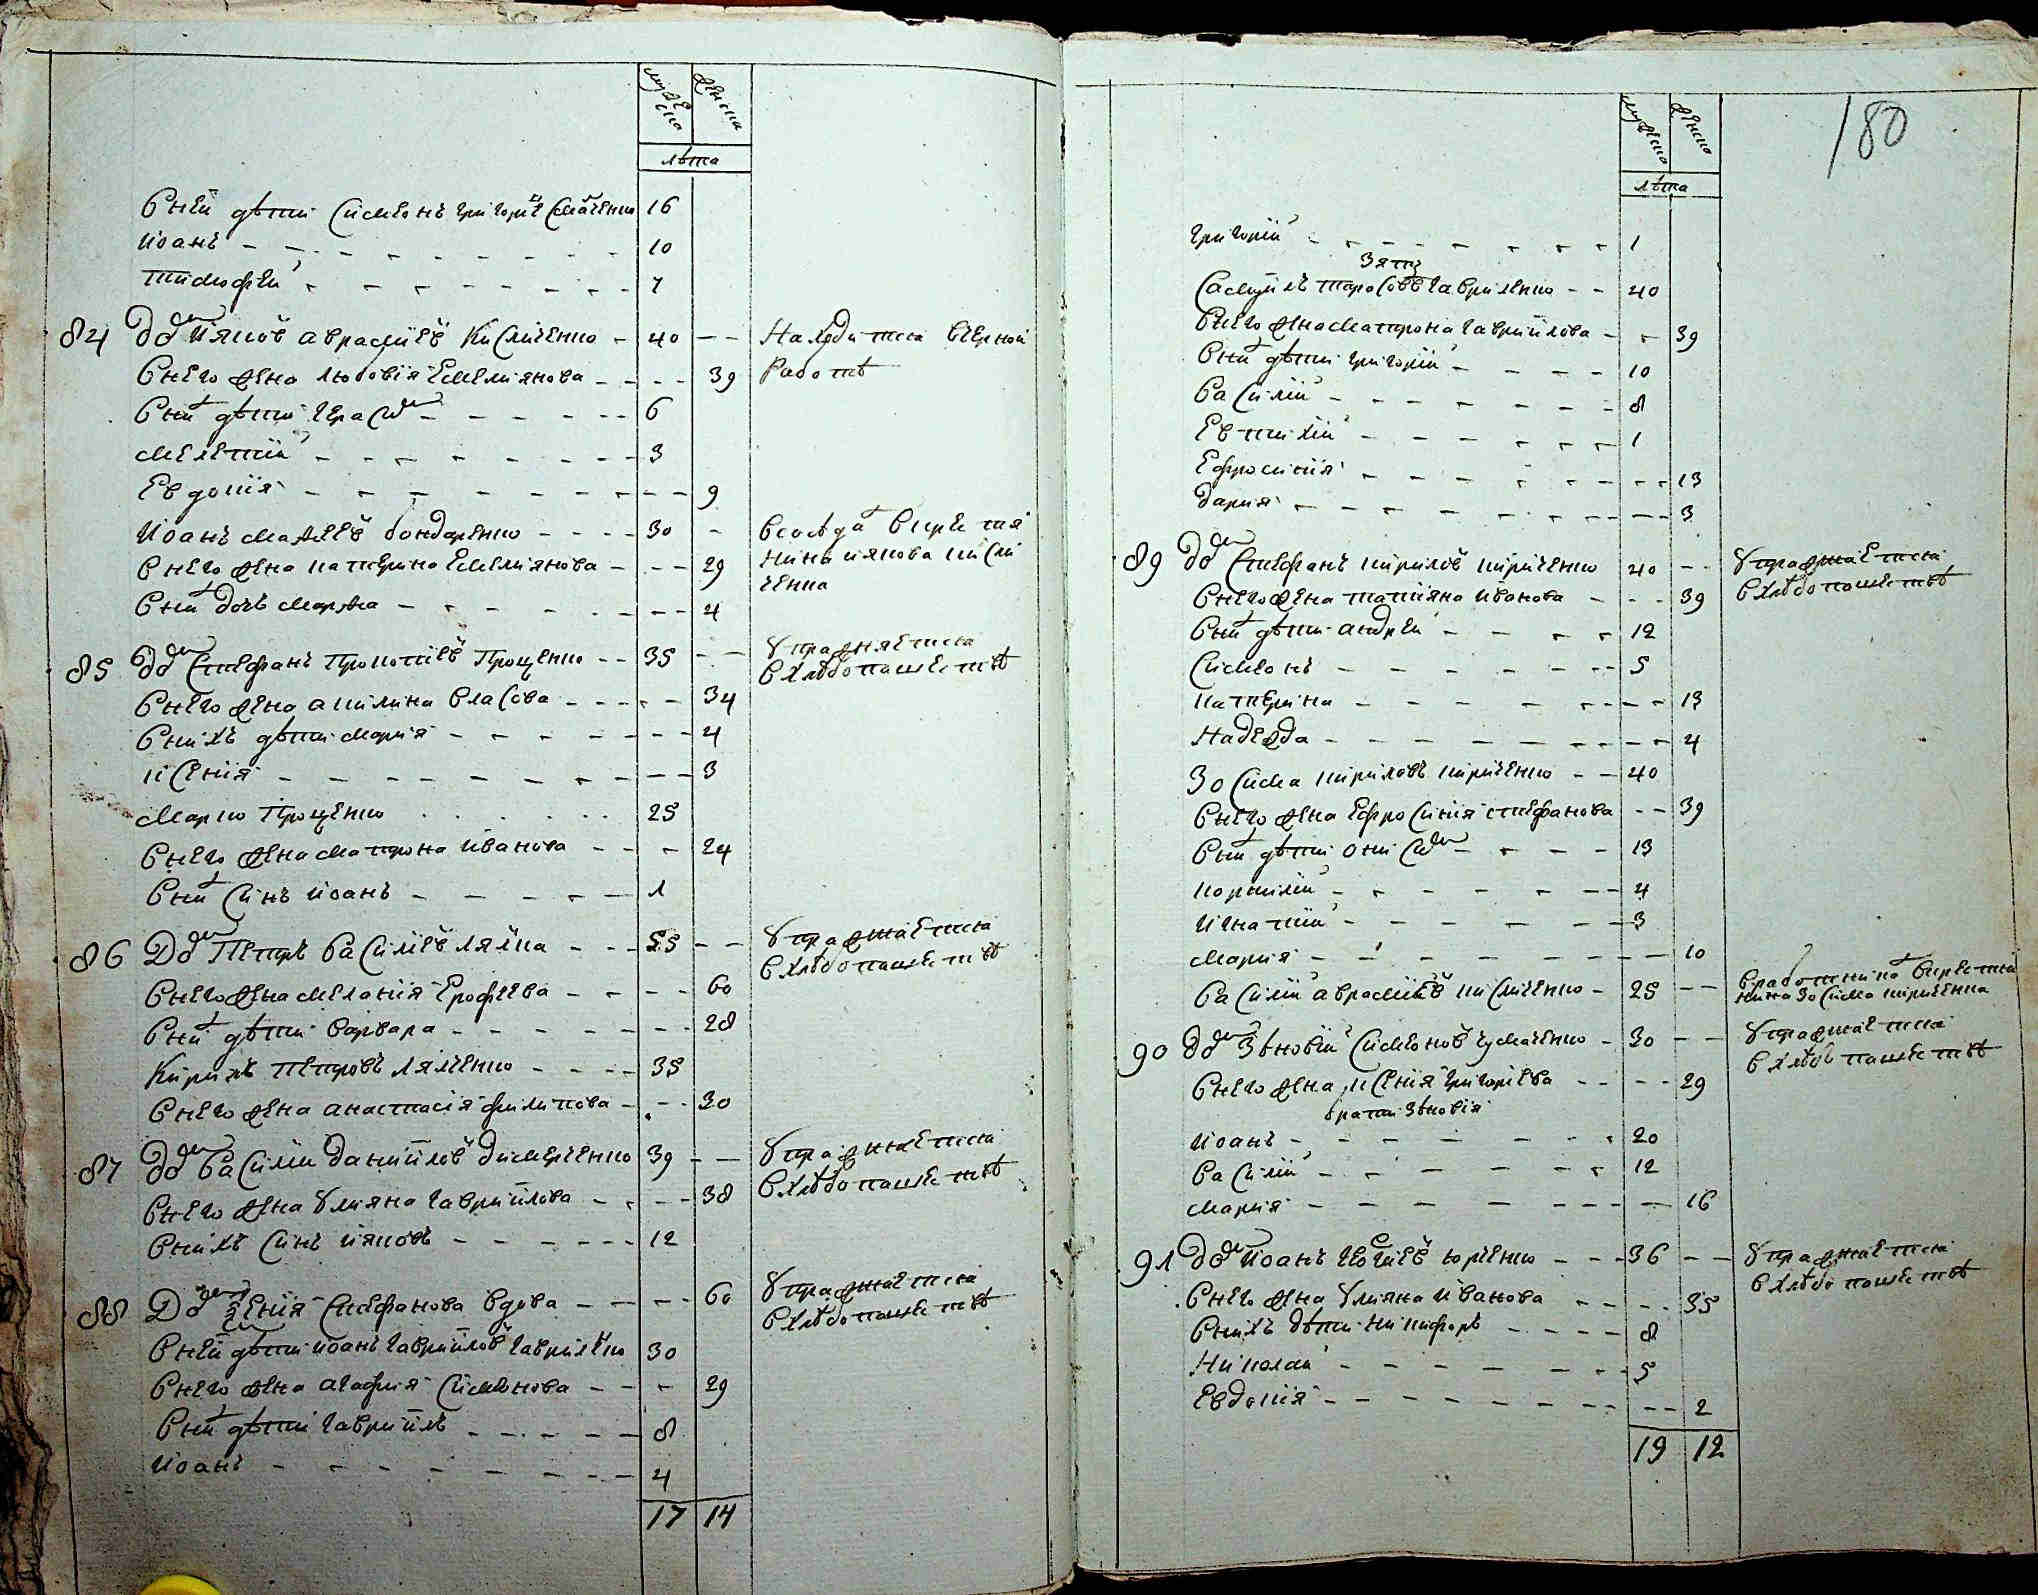 мужеска
женска
лѣта
Внеи дѣти Симеонъ Григорие 16
Иоанъ 10
Тимофеи 7
84 Дво Ияковъ Аврамиевъ Кисличенко 40
Находитсѧ вчерной
Внего жена Любовiя Емелиянова 39
работѣ
Вних дѣти Герасим 6
Мелетiи 3
Евдокiя 9
Иоанъ Мафеевъ Бондаренко 30
Внего жена Катерина Емелиянова 29
нина Иякова Кисли
ченка
Вних дочь Марфа 4
85 Дво Стефанъ Прокопиевъ Проценко 35
Упражняетсѧ
вхлѣбопашествѣ
Внего жена Акилина Власова 34
Внихъ дѣти Мария 4
Ксения 3
Марко Проценко 25
Внего жена Матрона Иванова 24
Вних синъ Иоанъ 1
86 Дво Петръ Василиевъ Ляшка 55
Упражняетсѧ
вхлѣбопашествѣ
Внего жена Меланiя Ерофеева 60
Вних дѣти Варвара 28
Кирилъ Петровъ 35
Внего жена Анастасiя Филипова 30
87 Дво Василии Даниiловъ Димерченко 39
Упражняетсѧ
вхлѣбопашествѣ
Внего жена Улияна Гавриiлова 38
Внихъ синъ Ияковъ 12
88 Дво Ксенiя Стефанова вдова 60
Упражняетсѧ
вхлѣбопашествѣ
Внеи дѣти Иоанъ Гавриiловъ Гавриленко 30
Внего жена Агафия Симеонова 29
Вних дѣти Гавриiлъ 8
Иоанъ 4
17 14
180
мужеска
женска
лѣта
Григорiи 1
зять
Самуiлъ Тарасовъ Гавриленко 40
Внего жена Матрона Гавриiлова 39
Вних дѣти Григорiи 10
Василiи 8
Евтихiи 1
Ефросинiя 13
Дария 3
89 Дво Стефанъ Кириловъ Кириченко 40
Упражняетсѧ
вхлѣбопашествѣ
Внего жена Татияна Иванова 39
Вних дѣти Андреи 12
Симеонъ 5
Катерина 13
Надежда 4
Зосима Кириловъ Кириченко 40
Внего жена Ефросинiя Стефанова 39
Вних дѣти Онисим 13
Корнилiи 4
Игнатiи 3
Мария 10
Василiи Аврамиевъ Кисличенко 25
вработниках вкрестья
нина Зосима Кириченка
90 Дво Зѣновiи Симеоновъ Чумаченко 30
Упражняетсѧ
вхлѣбопашествѣ
Внего жена Ксения Григориева 29
братя Зѣновiя
Иоанъ 20
Василiи 12
Мария 16
91 Дво Иоанъ Юрченко 36
Упражняетсѧ
вхлѣбопашествѣ
Внего жена Улияна Иванова 35
Внихъ дѣти Никифоръ 8
Николаи 5
Евдокiя 2
19 12